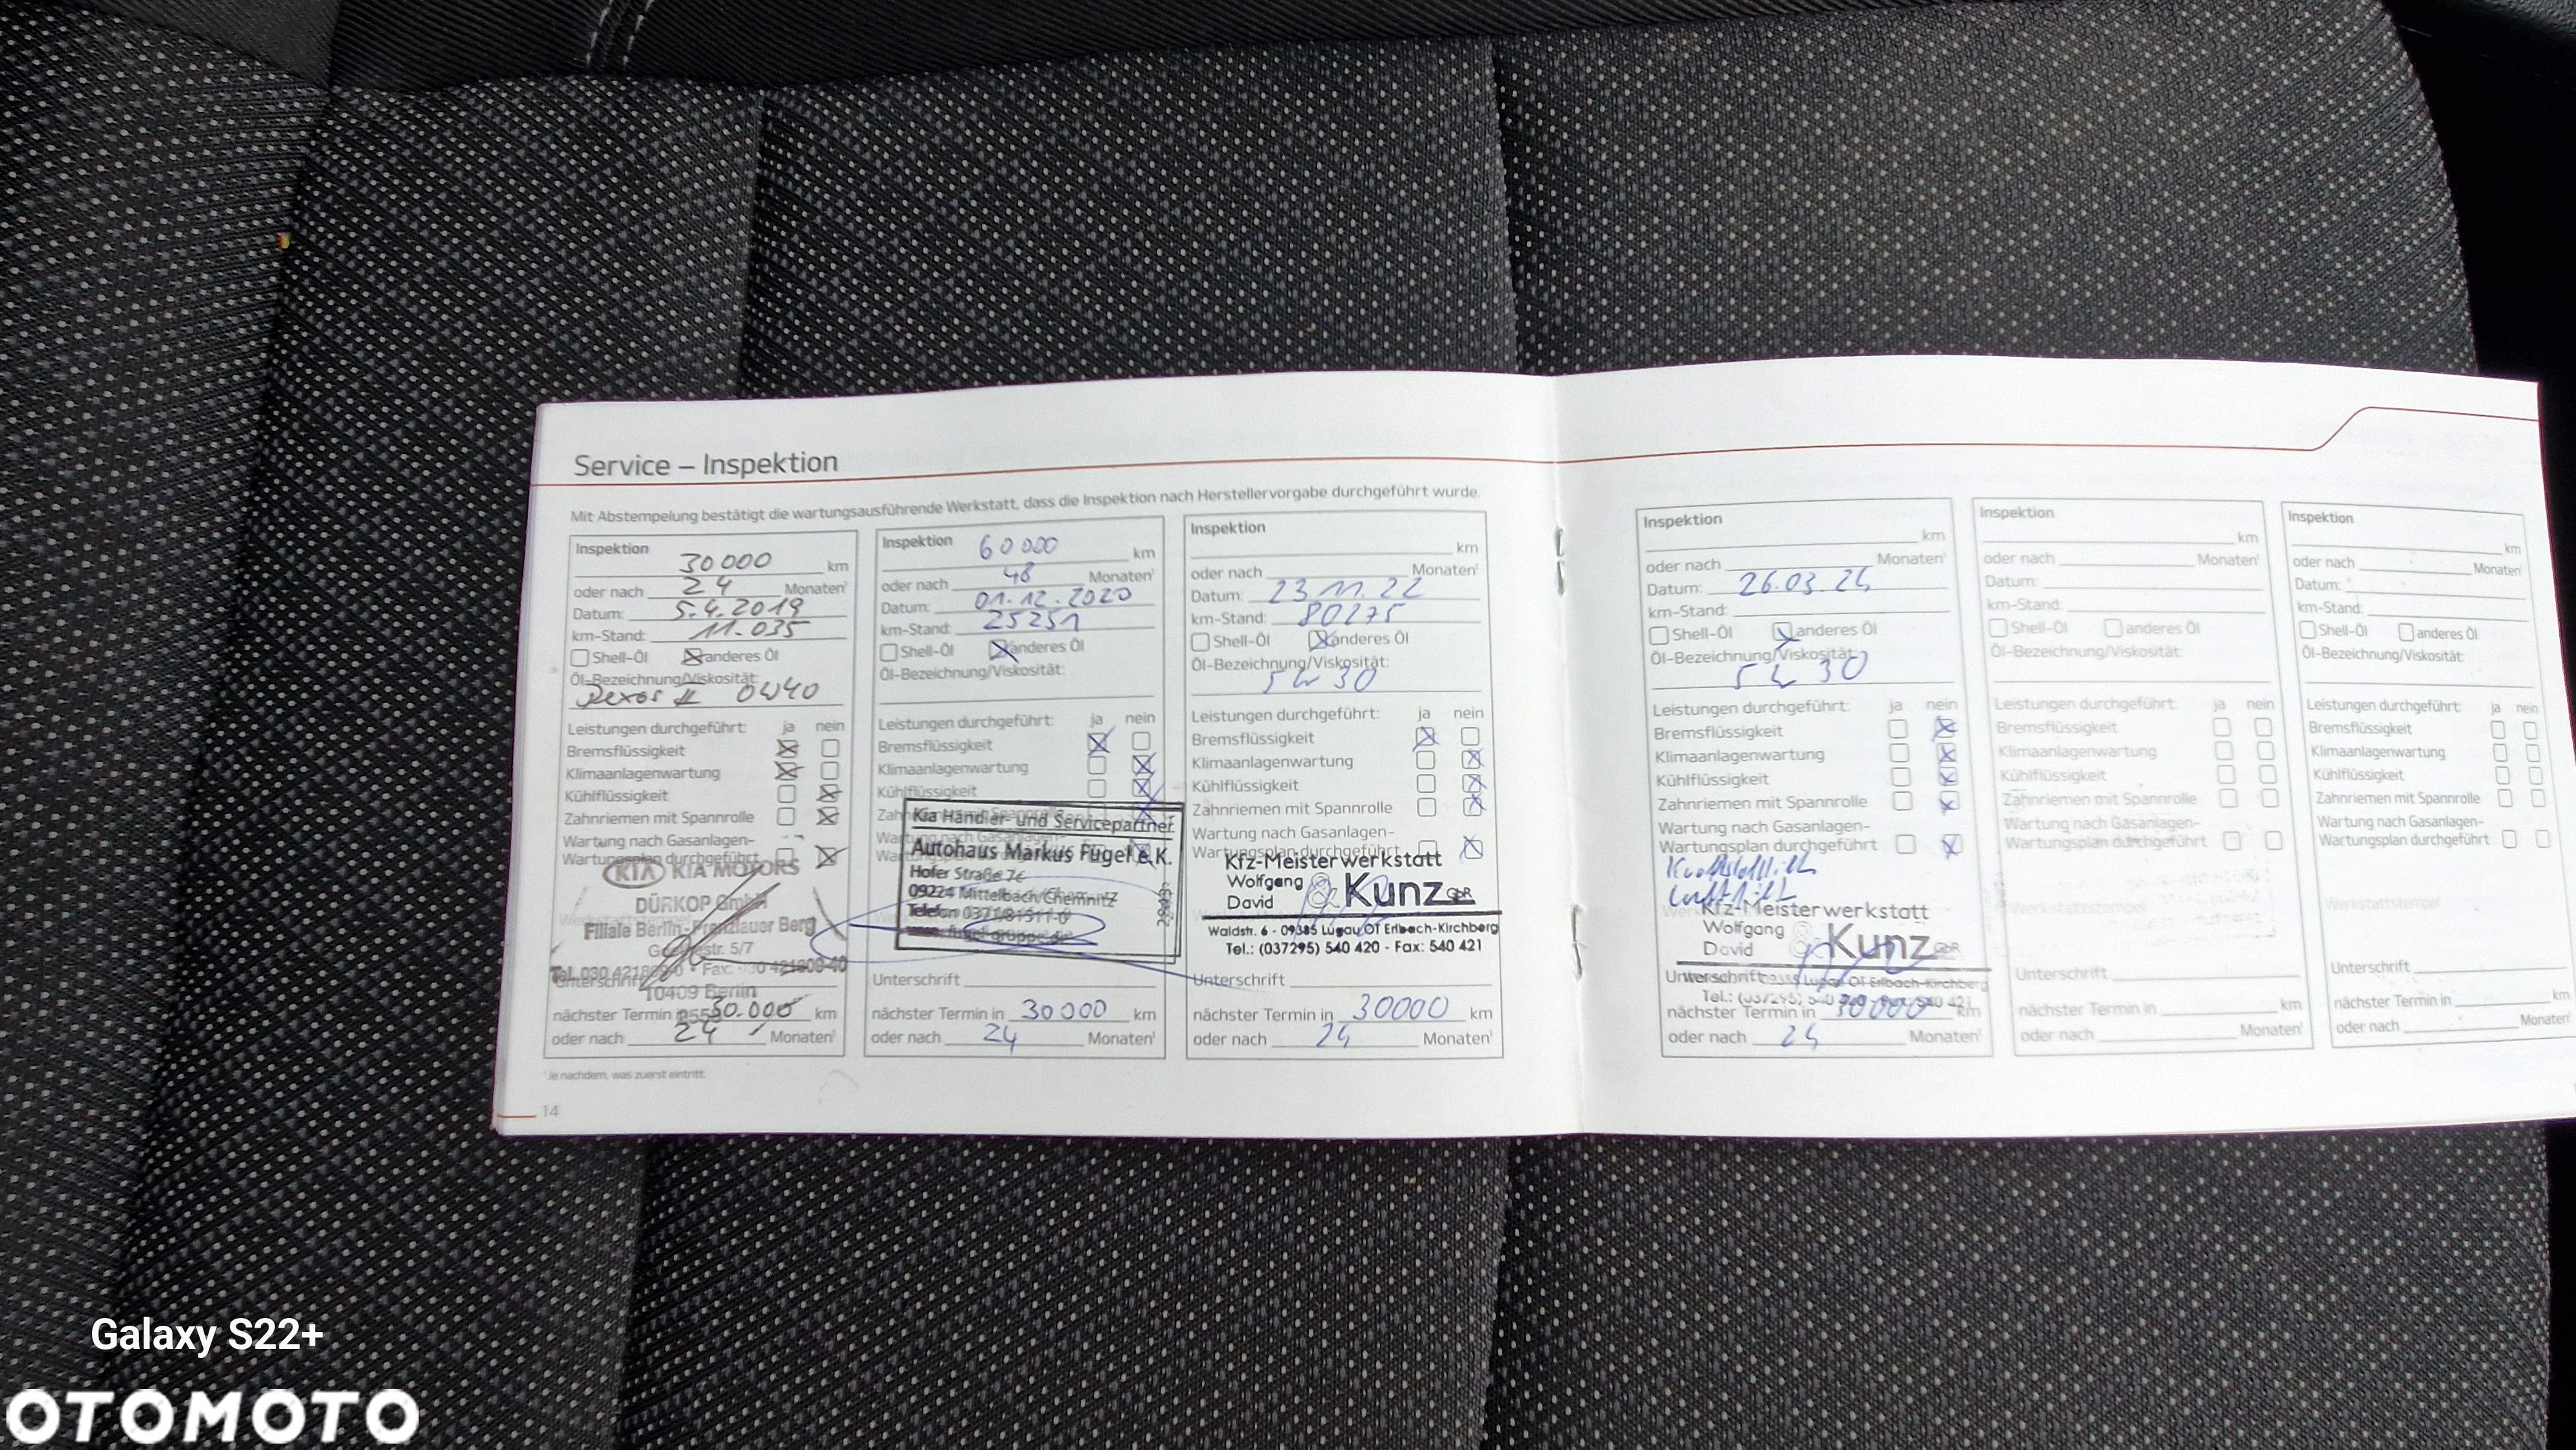 Service – Inspektion
Mit Abstempelung bestätigt die wartungsausführende Werkstatt, dass die Inspektion nach Herstellervorgabe durchgeführt wurde.
Inspektion
30 000 km
oder nach 24 Monaten¹
Datum: 5.4.2019
km-Stand: 11.035
Shell-Öl anderes Öl
Öl-Bezeichnung/Viskosität:
Dexos II 0W40
Leistungen durchgeführt: ja nein
Bremsflüssigkeit
Klimaanlagenwartung
Kühlflüssigkeit
Zahnriemen mit Spannrolle
Wartung nach Gasanlagen-
Wartungsplan durchgeführt
KIA KIA MOTORS
DÜRKOP GmbH
Filiale Berlin-Prenzlauer Berg
5/7
10409 Berlin
nächster Termin in 30.000 km
oder nach 24 Monaten¹
¹Je nachdem, was zuerst eintritt.
14
Inspektion 60 000 km
oder nach 48 Monaten¹
Datum: 01.12.2020
km-Stand: 25251
Shell-Öl anderes Öl
Öl-Bezeichnung/Viskosität:
Leistungen durchgeführt: ja nein
Bremsflüssigkeit
Klimaanlagenwartung
Kühlflüssigkeit
Kia Händler- und Servicepartner
Autohaus Markus Fugel e.K.
Hofer Straße 7c
09224 Mittelbach/Chemnitz
Telefon
Unterschrift
nächster Termin in 30 000 km
oder nach 24 Monaten¹
Inspektion
km
oder nach Monaten¹
Datum: 23 11. 22
km-Stand: 80275
Shell-Öl anderes Öl
Öl-Bezeichnung/Viskosität:
5W30
Leistungen durchgeführt: ja nein
Bremsflüssigkeit
Klimaanlagenwartung
Kühlflüssigkeit
Zahnriemen mit Spannrolle
Wartung nach Gasanlagen-
Wartungsplan durchgeführt
Kfz-Meisterwerkstatt
Wolfgang
David & Kunz GbR
Waldstr. 6 - 09385 Lugau OT Erlbach-Kirchberg
Tel.: (037295) 540 420 - Fax: 540 421
Unterschrift
nächster Termin in 30000 km
oder nach 24 Monaten¹
Inspektion
km
oder nach Monaten¹
Datum: 26.03.24
km-Stand:
Shell-Öl anderes Öl
Öl-Bezeichnung/Viskosität:
5W30
Leistungen durchgeführt: ja nein
Bremsflüssigkeit
Klimaanlagenwartung
Kühlflüssigkeit
Zahnriemen mit Spannrolle
Wartung nach Gasanlagen-
Wartungsplan durchgeführt
Kfz-Meisterwerkstatt
Wolfgang
David & Kunz GbR
Unterschrift Lugau OT Erlbach-Kirchberg
nächster Termin in 30000 km
oder nach 24 Monaten¹
Inspektion
km
oder nach Monaten¹
Datum:
km-Stand:
Shell-Öl anderes Öl
Öl-Bezeichnung/Viskosität:
Leistungen durchgeführt: ja nein
Bremsflüssigkeit
Klimaanlagenwartung
Kühlflüssigkeit
Zahnriemen mit Spannrolle
Wartung nach Gasanlagen-
Wartungsplan durchgeführt
Werkstattstempel
Unterschrift
nächster Termin in km
oder nach Monaten¹
Inspektion
km
oder nach Monaten¹
Datum:
km-Stand:
Shell-Öl anderes Öl
Öl-Bezeichnung/Viskosität:
Leistungen durchgeführt: ja nein
Bremsflüssigkeit
Klimaanlagenwartung
Kühlflüssigkeit
Zahnriemen mit Spannrolle
Wartung nach Gasanlagen-
Wartungsplan durchgeführt
Werkstattstempel
Unterschrift
nächster Termin in km
oder nach Monaten¹
Galaxy S22+
OTOMOTO